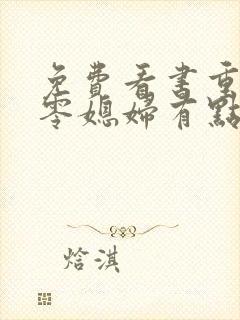 免費看書重
零媳婦有點
焓淇